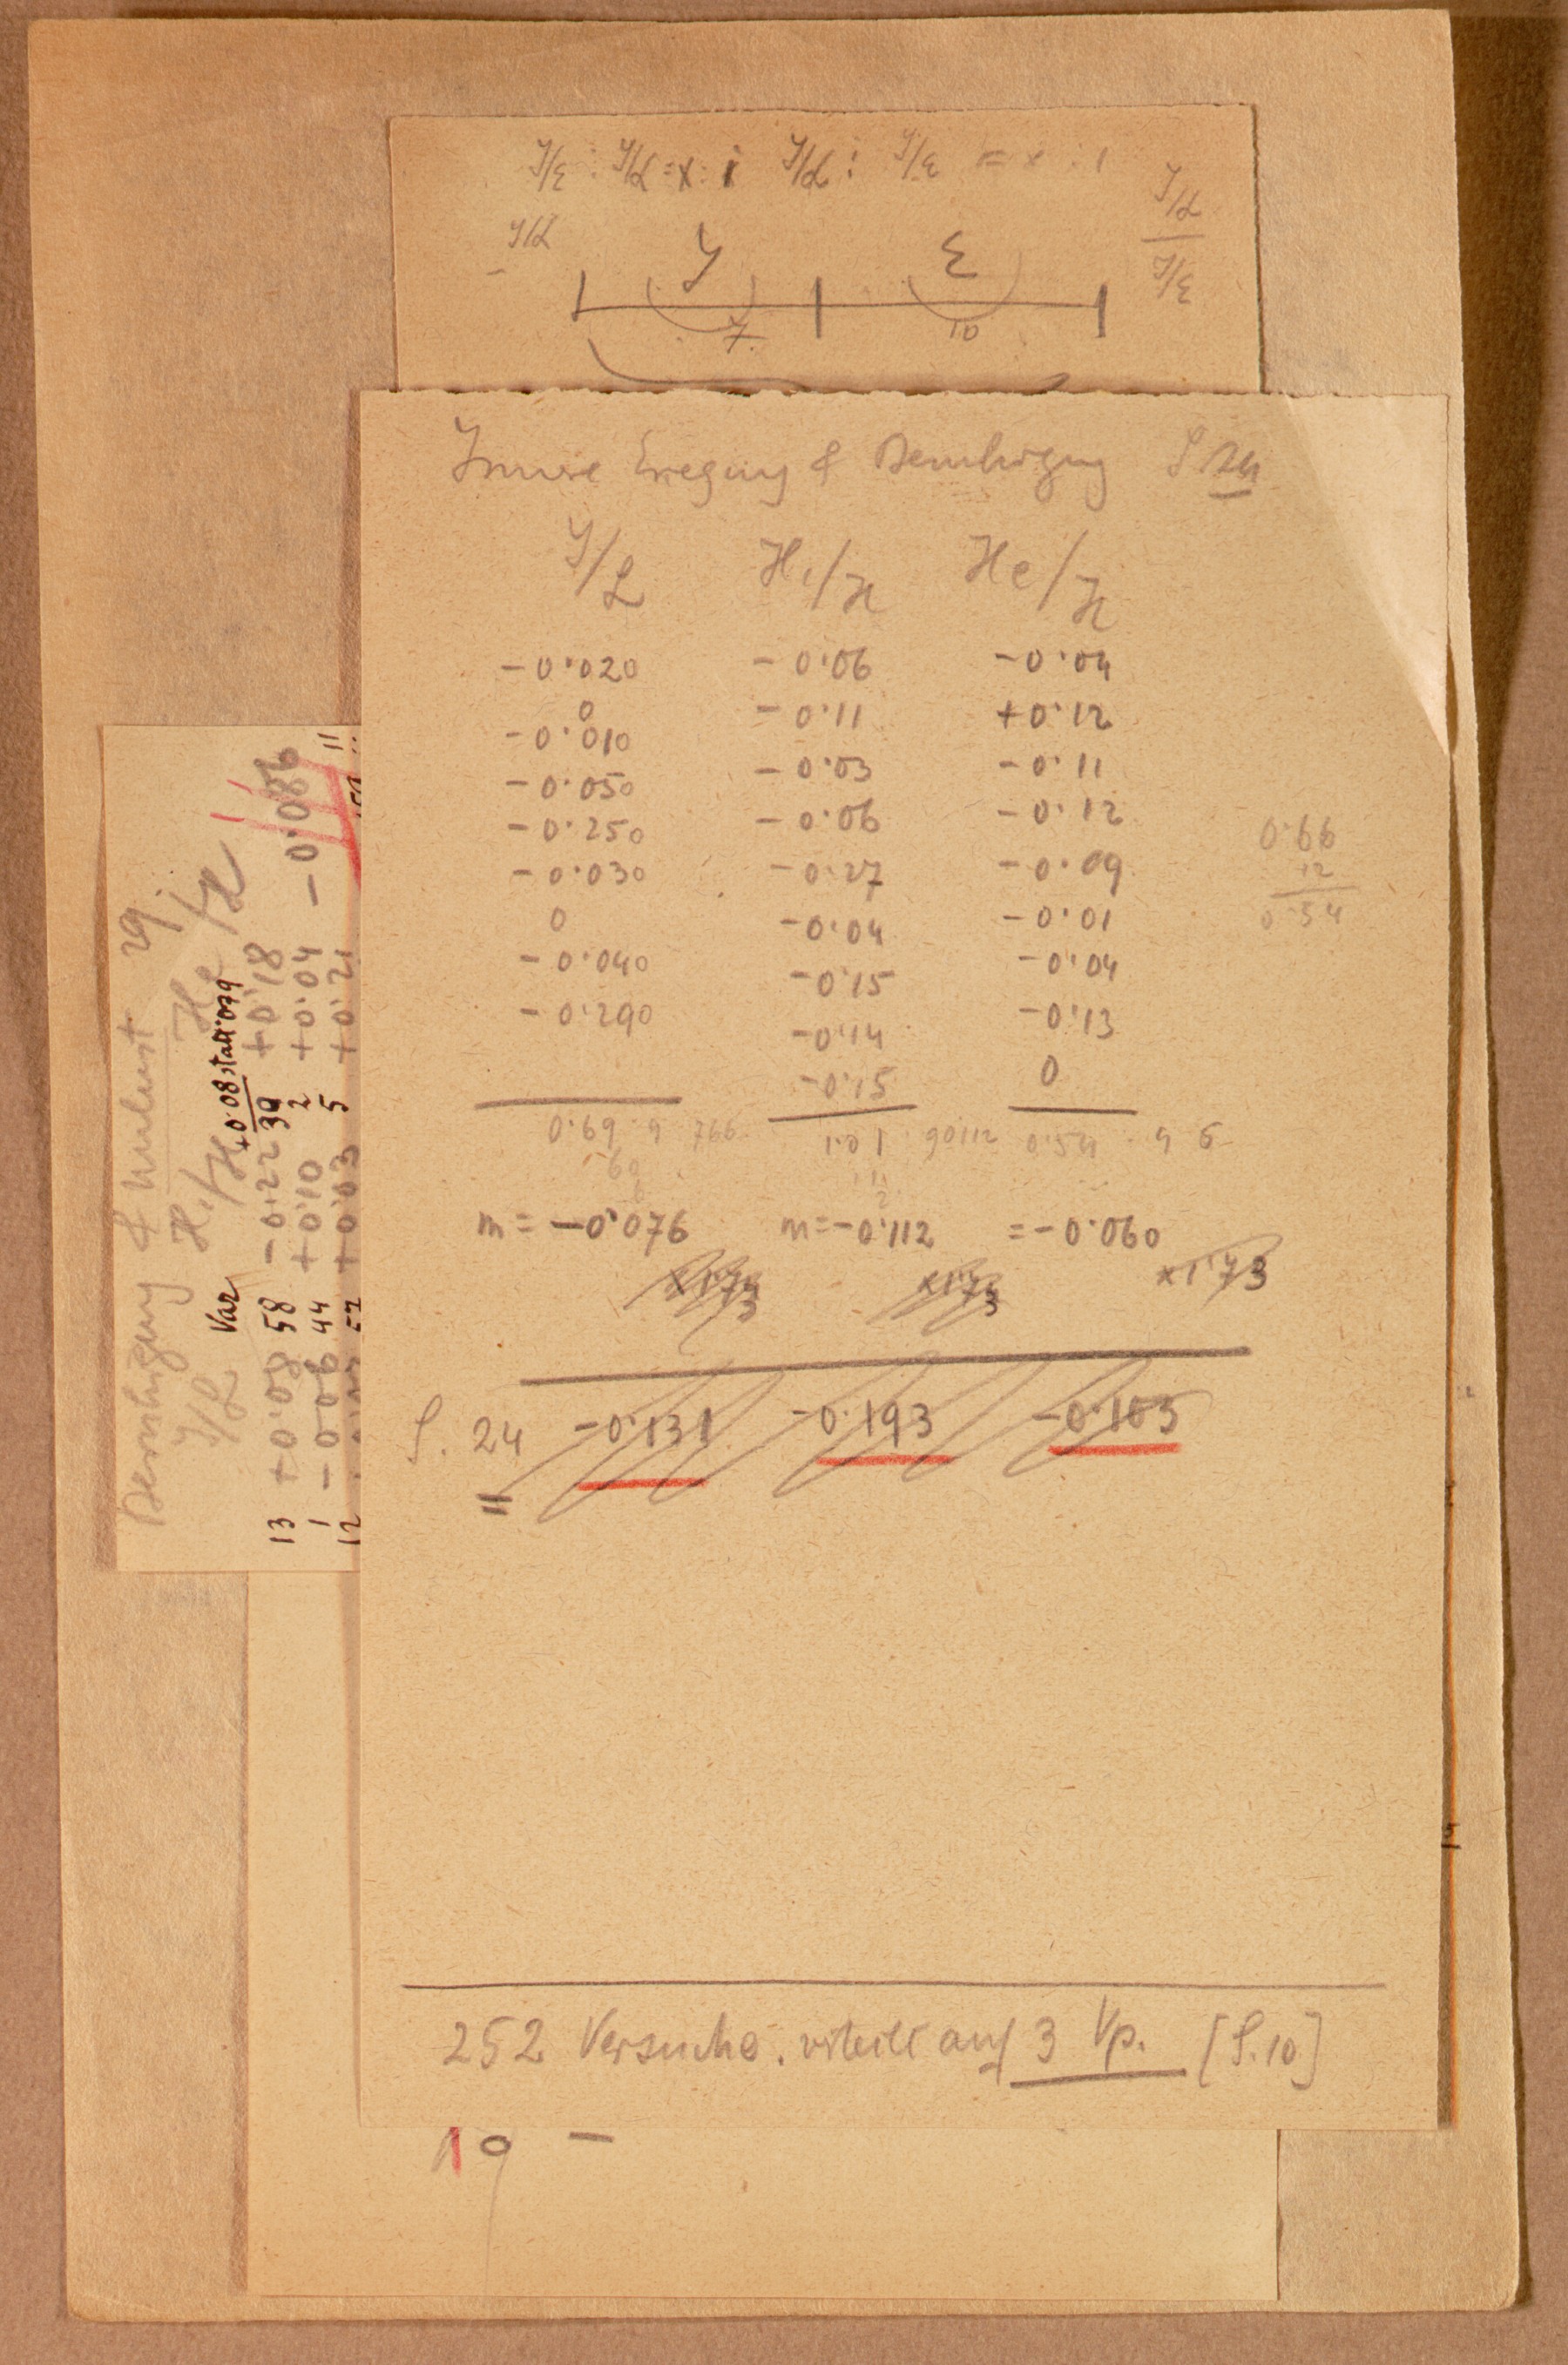 J/E : J/L = x : 1 J/L : J/E = x : 1 J/L
J/L J E J/E
7 10
Innere Erregung & Beruhigung S 24
J/L Hi/H He/H
-0·020 -0·06 -0·04
0 -0·11 +0·12
-0·010 -0·03 -0·11
-0·050 -0·06 -0·12
-0·250 -0·27 -0·09
-0·030 -0·04 -0·01
0 -0·15 -0·04
-0·040 -0·14 -0·13
-0·290 -0·15 0
0·66
12
0·54
0·69 : 9 766 1·01 : 9 0112 0·54 : 9 6
69
m = -0·076 m = -0·112 = -0·060
×1·73 ×1·73 ×1·73
S. 24 -0·131 -0·193 -0·103
252 Versuche, verteilt auf 3 Vp. [S.10]
19 –
Beruhigung & Unlust 29
J/L Hi/H He/H
Var +0·08 statt 039
13 +0·08 58 -0·22 39 +0·18
1 -0·06 44 +0·10 2 +0·04 -0·086
12 +0·03 5 +0·21 11